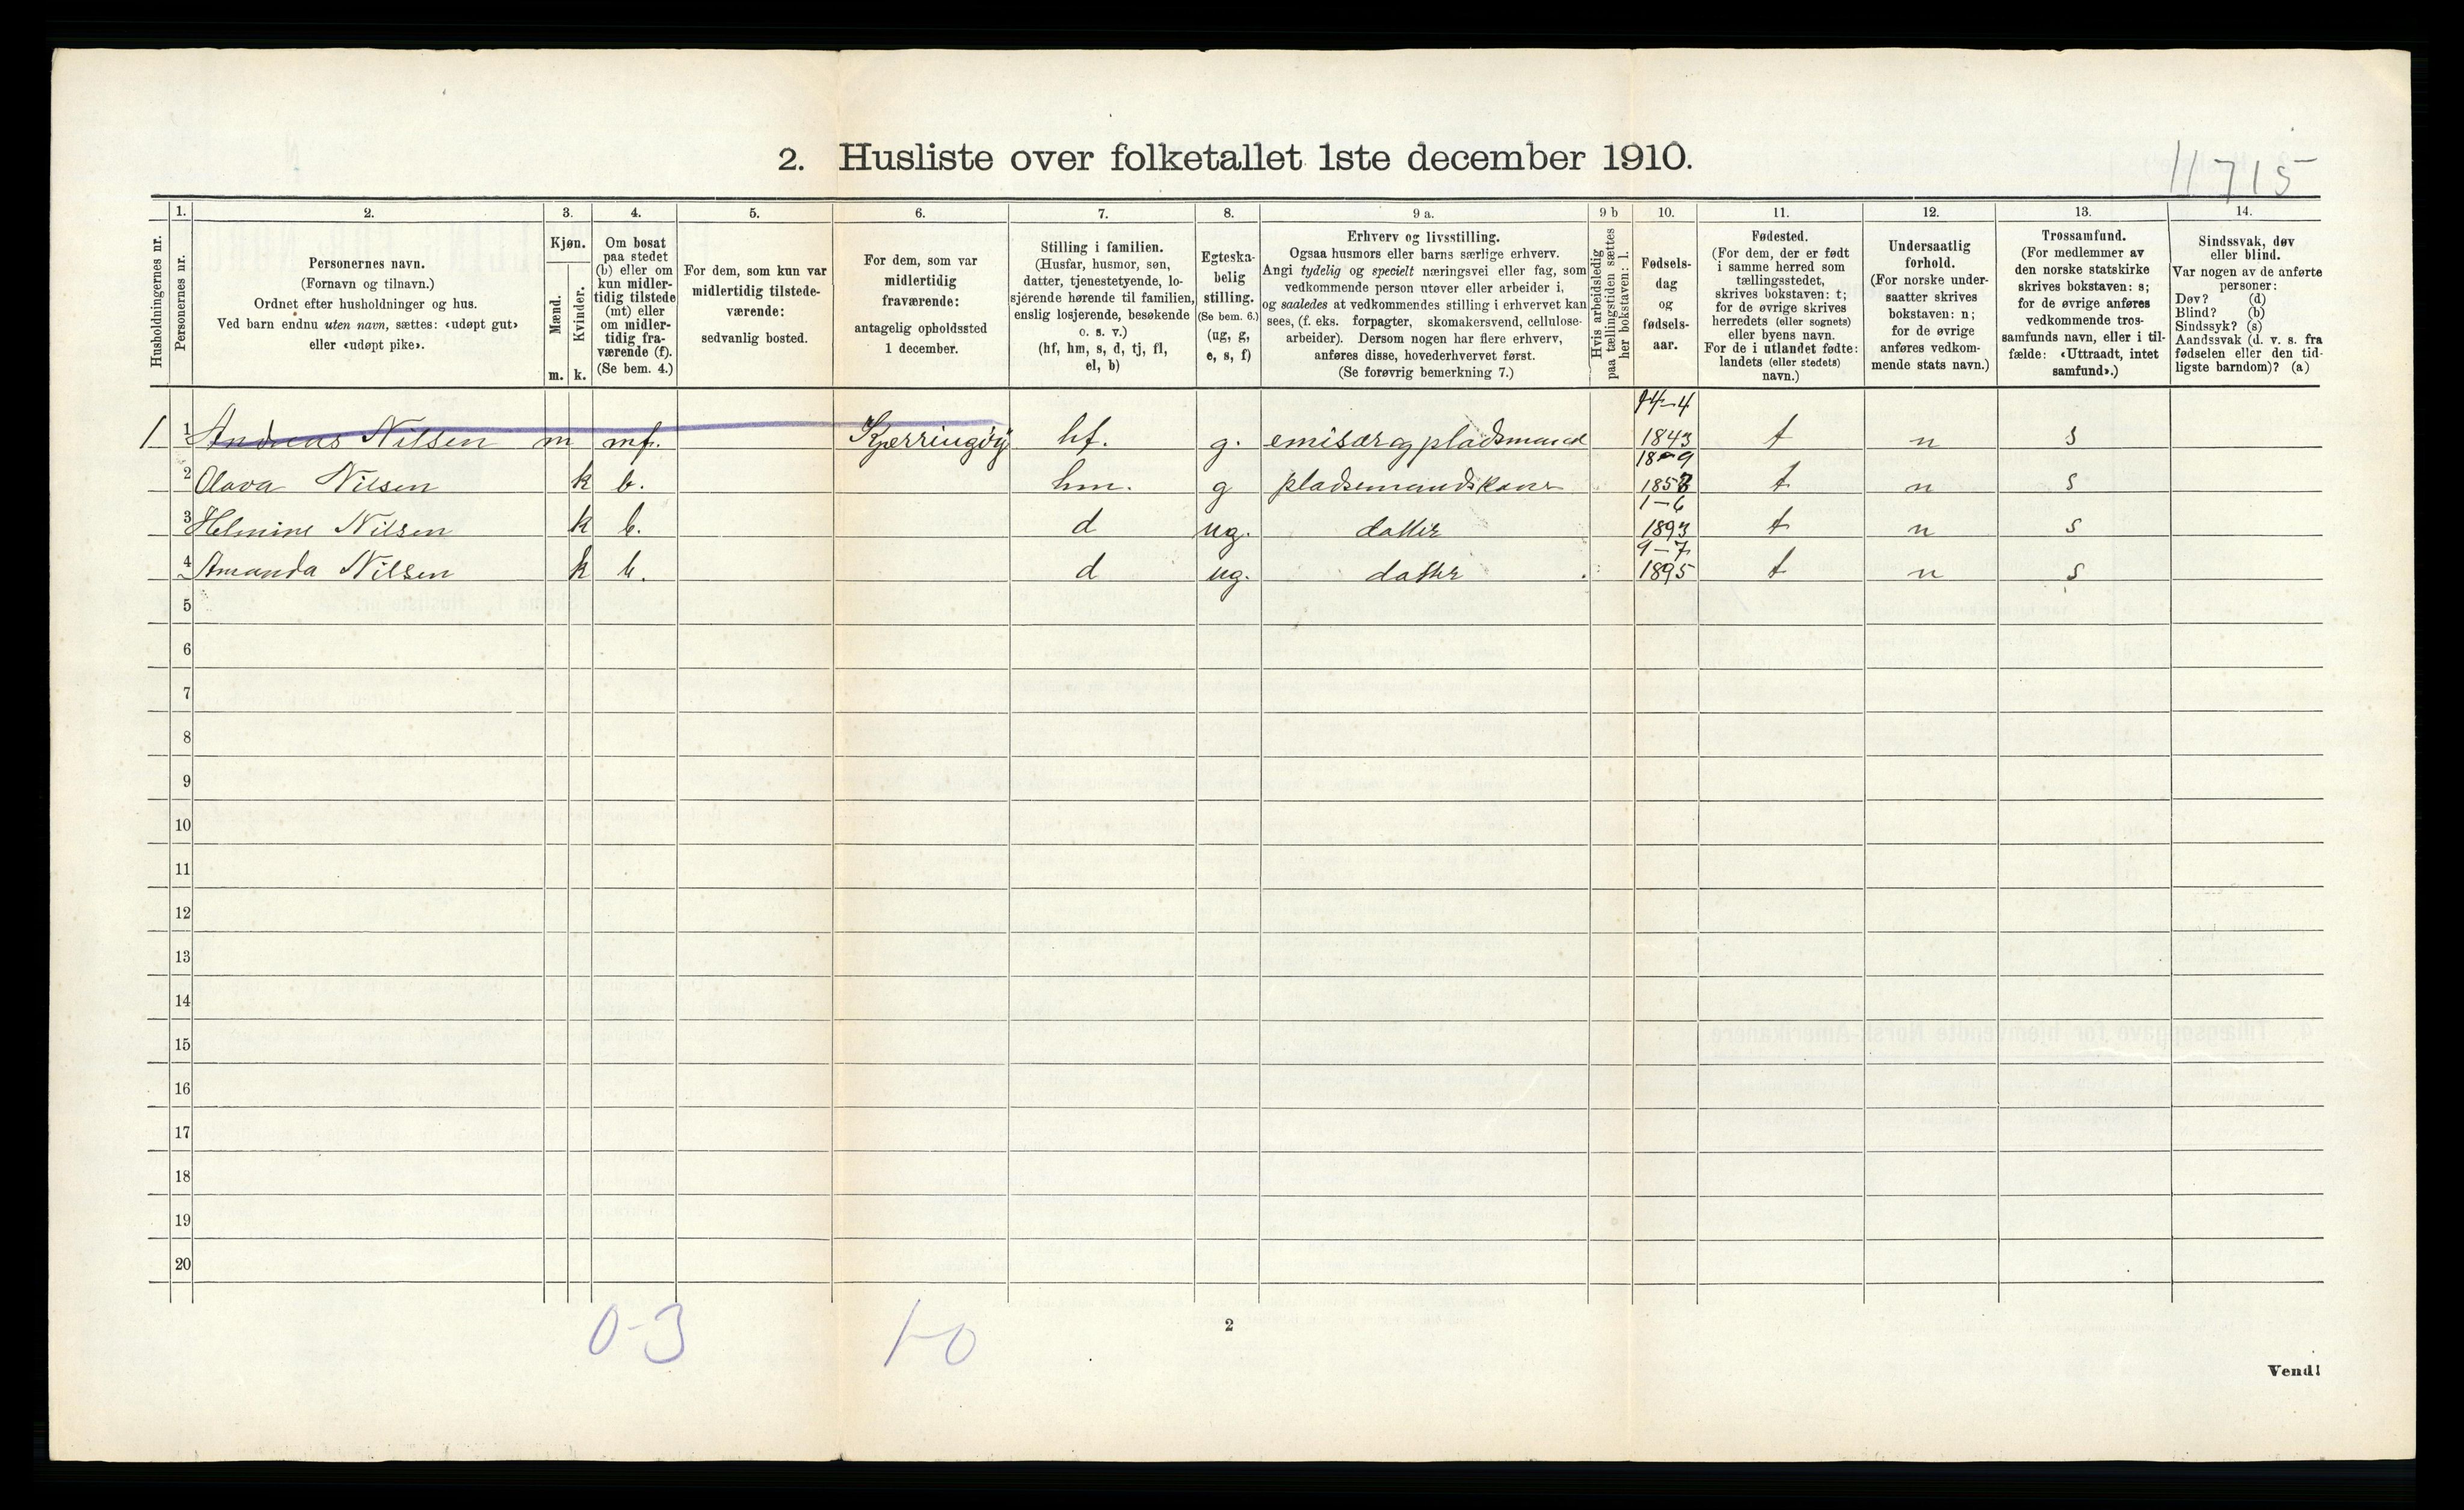 2. Husliste over folketallet 1ste december 1910.
11715
Husholdningernes nr.
1.
Personernes nr.
2.
Personernes navn.
(Fornavn og tilnavn.)
Ordnet efter husholdninger og hus.
Ved barn endnu uten navn, sættes: «udøpt gut»
eller «udøpt pike».
3.
Kjøn.
Mænd.
Kvinder.
m. k.
4.
Om bosat
paa stedet
(b) eller om
kun midler-
tidig tilstede
(mt) eller
om midler-
tidig fra-
værende (f).
(Se bem. 4.)
5.
For dem, som kun var
midlertidig tilstede-
værende:
sedvanlig bosted.
6.
For dem, som var
midlertidig
fraværende:
antagelig opholdssted
1 december.
7.
Stilling i familien.
(Husfar, husmor, søn,
datter, tjenestetyende, lo-
sjerende hørende til familien,
enslig losjerende, besøkende
o. s. v.)
(hf, hm, s, d, tj, fl,
el, b)
8.
Egteska-
belig
stilling.
(Se bem. 6.)
(ug, g,
e, s, f)
9 a.
Erhverv og livsstilling.
Ogsaa husmors eller barns særlige erhverv.
Angi tydelig og specielt næringsvei eller fag, som
vedkommende person utøver eller arbeider i,
og saaledes at vedkommendes stilling i erhvervet kan
sees, (f. eks. forpagter, skomakersvend, cellulose-
arbeider). Dersom nogen har flere erhverv,
anføres disse, hovederhvervet først.
(Se forøvrig bemerkning 7.)
9 b
Hvis arbeidsledig
paa tællingstiden sættes
her bokstaven: l.
10.
Fødsels-
dag
og
fødsels-
aar.
11.
Fødested.
(For dem, der er født
i samme herred som
tællingsstedet,
skrives bokstaven: t;
for de øvrige skrives
herredets (eller sognets)
eller byens navn.
For de i utlandet fødte:
landets (eller stedets)
navn.)
12.
Undersaatlig
forhold.
(For norske under-
saatter skrives
bokstaven: n;
for de øvrige
anføres vedkom-
mende stats navn.)
13.
Trossamfund.
(For medlemmer av
den norske statskirke
skrives bokstaven: s;
for de øvrige anføres
vedkommende tros-
samfunds navn, eller i til-
fælde: «Uttraadt, intet
samfund».)
14.
Sindssvak, døv
eller blind.
Var nogen av de anførte
personer:
Døv? (d)
Blind? (b)
Sindssyk? (s)
Aandssvak (d. v. s. fra
fødselen eller den tid-
ligste barndom)? (a)
14-4
1 1 Andreas Nilsen m mf. Kjærringøy hf. g. emisær og pladsmand 1843 t n s
18-9
2 Olava Nilsen k b. hm. g pladsmandskone 1858 t n s
1-6
3 Helmine Nilsen k b. d ug. datter 1893 t n s
9-7
4 Amanda Nilsen k b. d ug. datter 1895 t n s
5
6
7
8
9
10
11
12
13
14
15
16
17
18
19
20
0-3 1-0
2
Vend!